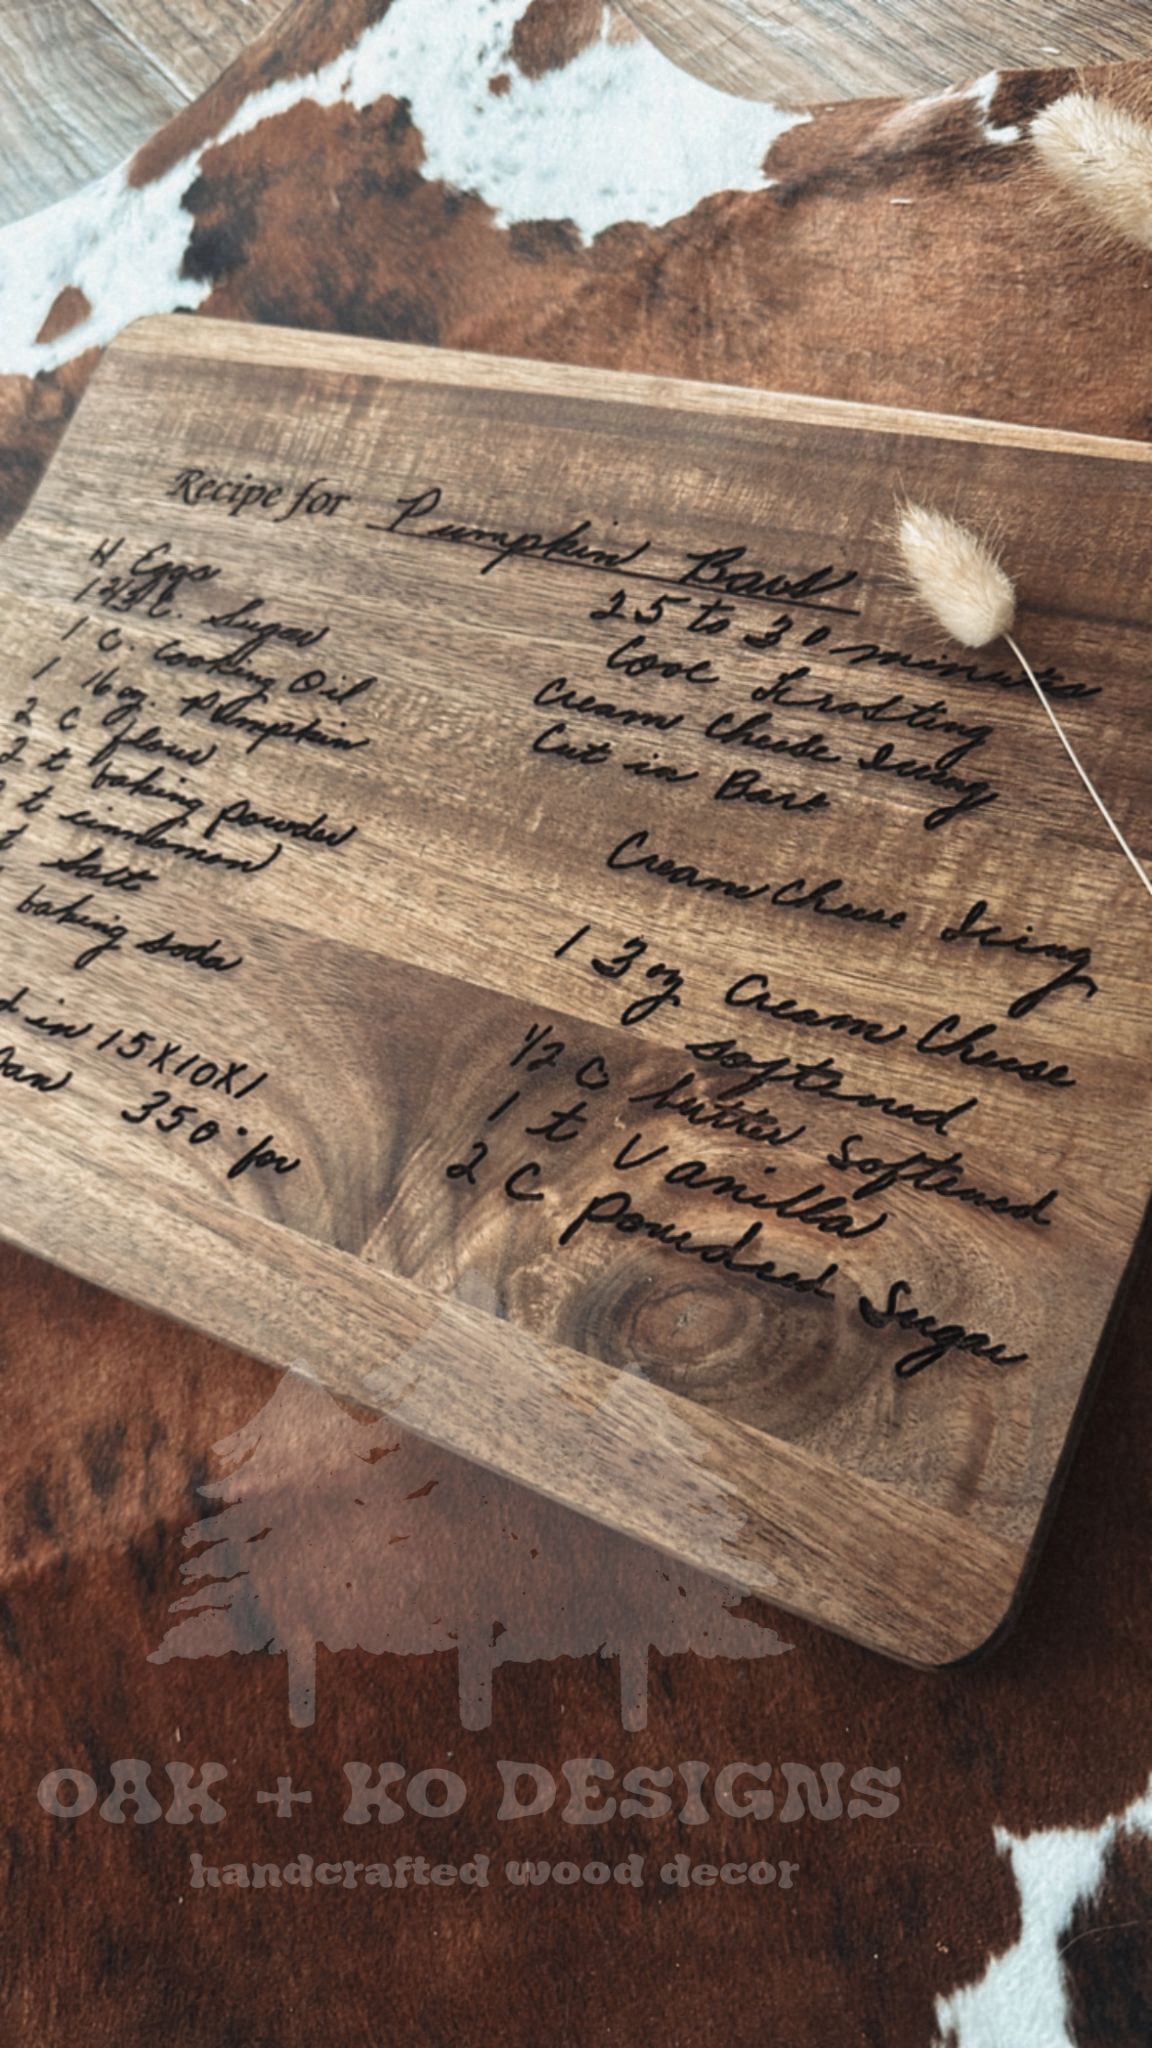 Recipe for Pumpkin Bars
4 Eggs
1 2/3 C. Sugar
1 C. Cooking Oil
1 16 oz. Pumpkin
2 C flour
2 t baking powder
t cinnamon
t Salt
baking soda
in 15X10X1
Pan 350° for
25 to 30 minutes
Cool frosting
Cream Cheese Icing
Cut in Bars
Cream Cheese Icing
1 3 oz Cream Cheese
softened
1/2 C butter Softened
1 t Vanilla
2 C Powdered Sugar
OAK + KO DESIGNS
handcrafted wood decor